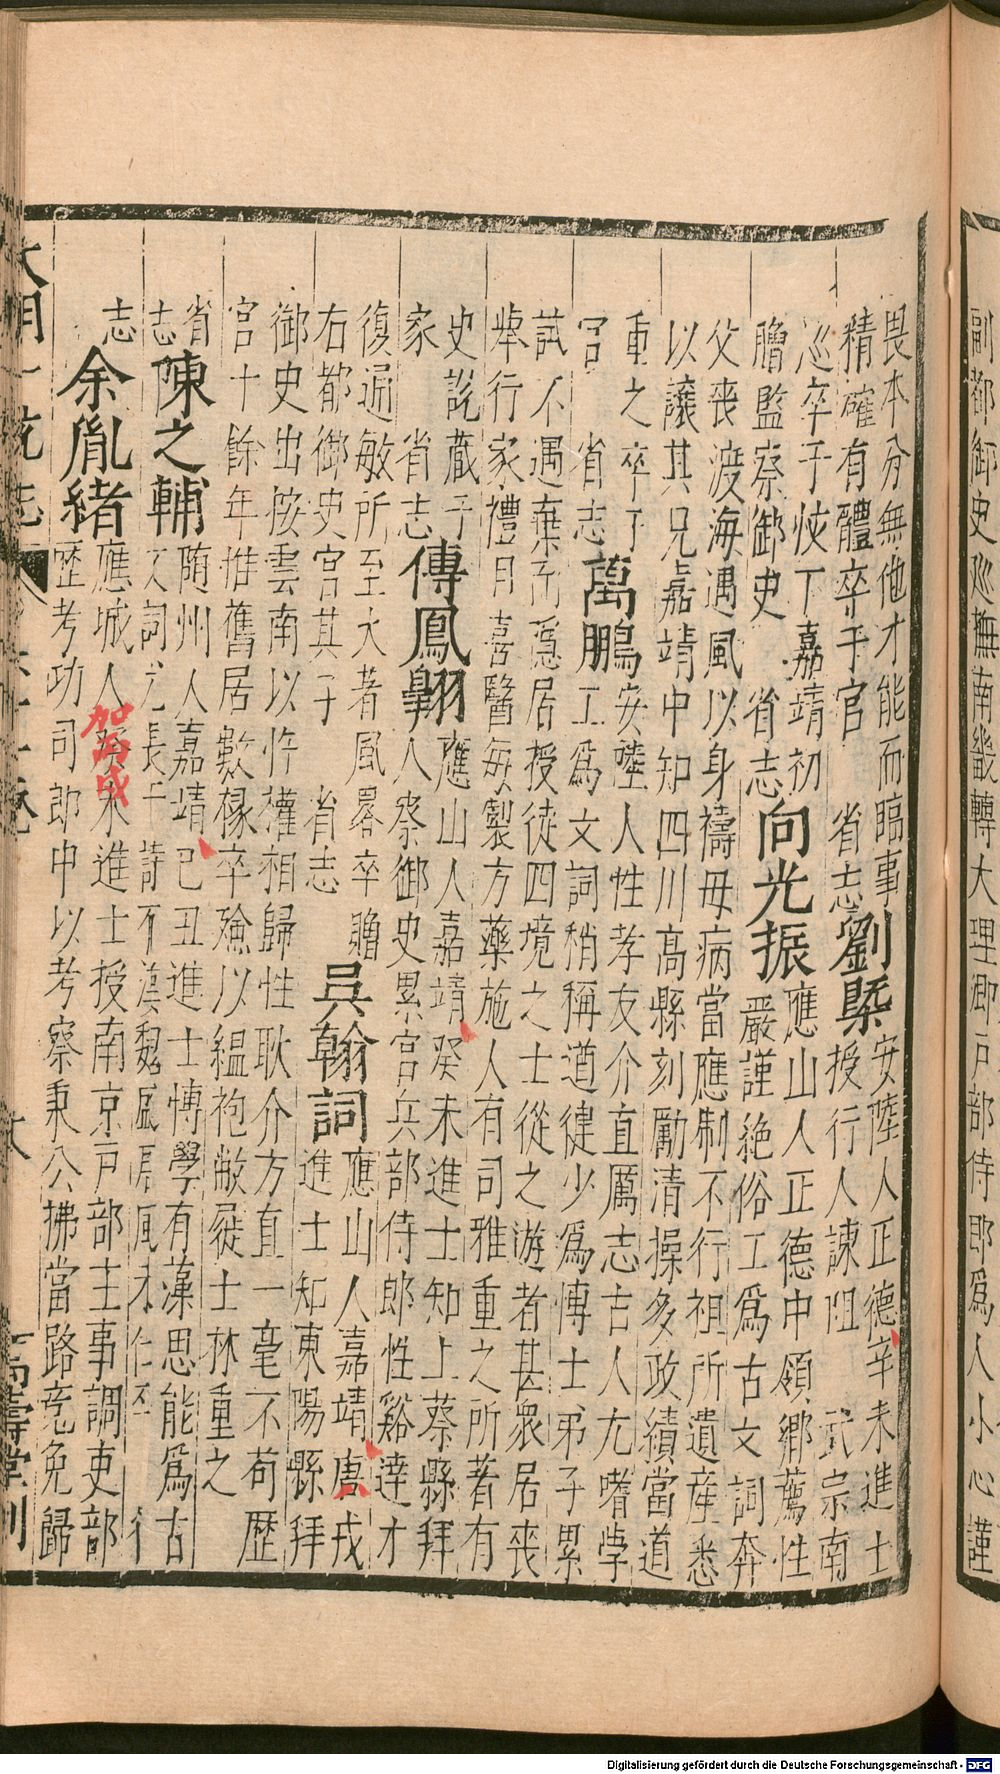 副都御史巡撫南畿轉大理卿戶部侍郎爲人小心謹
畏本分無他才能而臨事
精確有體卒于官 省志
劉㮣
安陸人正德辛未進士
授行人諫阻 武宗南
巡卒于杖下嘉靖初
贈監察御史 省志
向光振
應山人正德中領鄉薦性
嚴謹絶俗工爲古文詞奔
父喪渡海遇風以身禱母病當應制不行祖所遺產悉
以讓其兄嘉靖中知四川高縣刻勵清操多政績當道
重之卒于
官 省志
萬鵬
安陸人性孝友介直厲志古人尤嗜學
工爲文詞稍稱道徤少爲博士弟子累
試不遇棄而隱居授徒四境之士從之遊者甚衆居喪
舉行家禮日喜醫每製方藥施人有司雅重之所著有
史説藏于
家 省志
傅鳳翱
應山人嘉靖癸未進士知上蔡縣拜
人察御史累官兵部侍郎性谿達才
復逼敏所至大著風畧卒 贈
右都御史官其子 省志
吳翰詞
應山人嘉靖唐戌
進士知東陽縣拜
御史出按雲南以忤權相歸性耿介方直一毫不苟歷
官十餘年惟舊居數椽卒殮以縕袍敝屣士林重之
省
志
陳之輔
隨州人嘉靖己丑進士博學有藻思能爲古
文詞尤長于詩有漢魏風
志
余胤緒
應城人癸未進士授南京戶部主事調吏部
歷考功司郎中以考察秉公拂當路竟免歸
大明一統志 六 萬壽堂刊
Digitalisierung gefördert durch die Deutsche Forschungsgemeinschaft - DFG